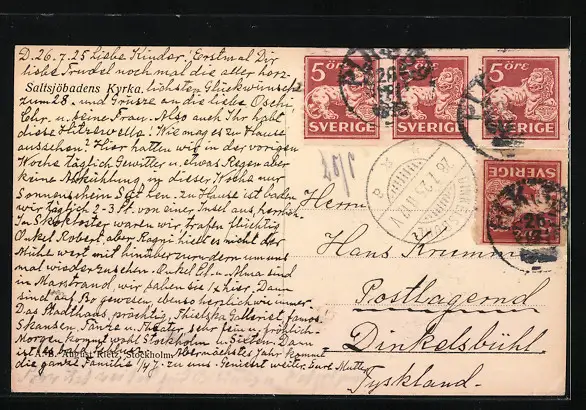 D. 26. 7. 25 Liebe Kinder! Erstmal Dir
liebe Trudel nochmal die aller herz-
Saltsjöbadens Kyrka. lichsten Glückwünsche
zum 28. und Grüsse an die liebe
u. seine Frau. Also auch Ihr habt
diese Hitzewelle! Wie mag es zu Hause
aussehen? Hier hatten wir in der vorigen
Woche täglich Gewitter u. etwas Regen aber
keine Abkühlung, in dieser Woche nur
Sonnenschein zu Hause ist baden
wir täglich 2-3 St. von einer Insel aus, herrlich.
In waren wir, trafen flüchtig
Onkel Robert aber Ragni hielt es nicht der
Mühe wert mit hinüberzurudern um uns
mal wiederzusehen. Onkel Th. u. Alma sind
in Marstrand, wir sahen sie 1x hier. Dann
sind auf Bo gewesen, ebenso herrlich wie immer.
Das Stadthaus, prächtig, Thielska Galleriet, famos.
Skansen, Tänze u. Theater sehr fein u. fröhlich.
Morgen kommt wohl Stockholm u. Sixten. Dann
ist Abernächstes Jahr kommt
die ganze Familie zu uns. Geniesst weiter. Eure Mutter
A.-B. August Rietz, Stockholm.
5 ÖRE
SVERIGE
5 ÖRE
SVERIGE
5 ÖRE
SVERIGE
SVERIGE
Herrn
Hans Krumm
Postlagernd
Dinkelsbühl
Tyskland.